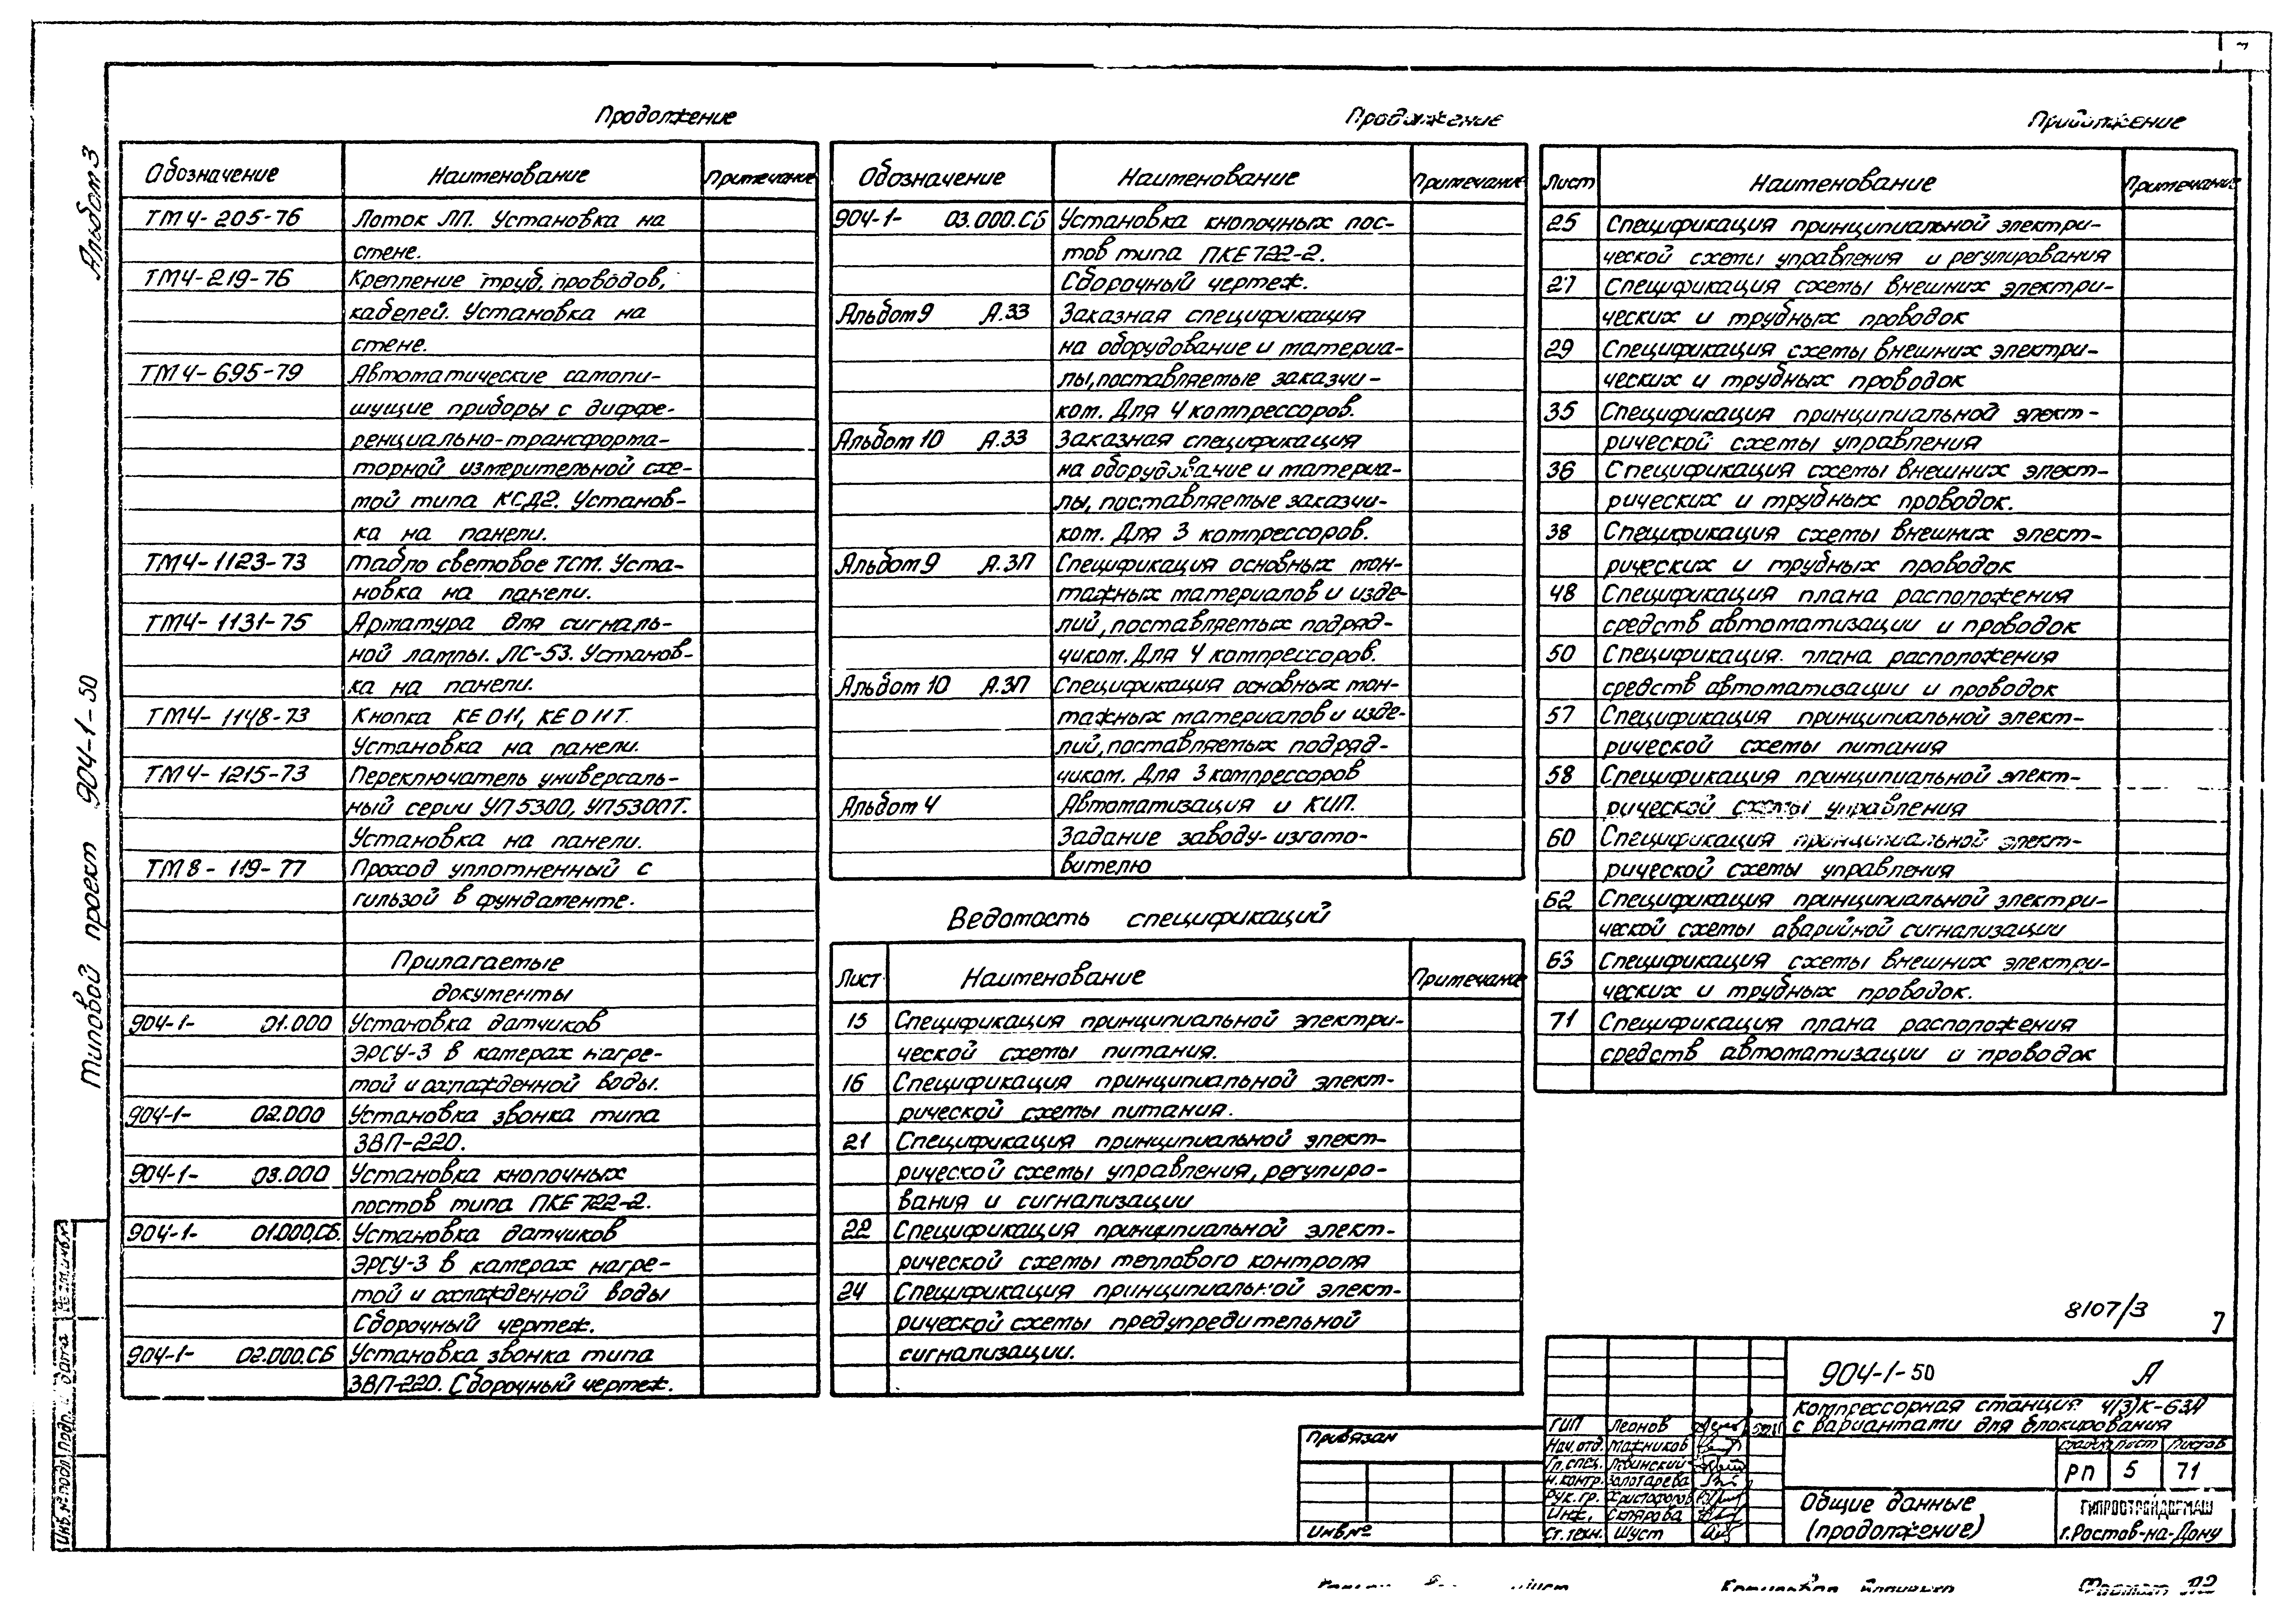 Альбом 3
Типовой проект 904-1-50
Продолжение
Обозначение Наименование Примечание
ТМ4-205-76 Лоток ЛП. Установка на
стене.
ТМ4-219-76 Крепление труб, проводов,
кабелей. Установка на
стене.
ТМ4-695-79 Автоматические самопи-
шущие приборы с диффе-
ренциально-трансформа-
торной измерительной схе-
мой типа КСД2. Установ-
ка на панели.
ТМ4-1123-73 Табло световое ТСМ. Уста-
новка на панели.
ТМ4-1131-75 Арматура для сигналь-
ной лампы. ЛС-53. Установ-
ка на панели.
ТМ4-1148-73 Кнопка КЕ011, КЕ011Т.
Установка на панели.
ТМ4-1215-73 Переключатель универсаль-
ный серии УП5300, УП5300Т.
Установка на панели.
ТМ8-119-77 Проход уплотненный с
гильзой в фундаменте.
Прилагаемые
документы
904-1- 01.000 Установка датчиков
ЭРСУ-3 в камерах нагре-
той и охлажденной воды.
904-1- 02.000 Установка звонка типа
ЗВП-220.
904-1- 03.000 Установка кнопочных
постов типа ПКЕ 722-2.
904-1- 01.000.СБ. Установка датчиков
ЭРСУ-3 в камерах нагре-
той и охлажденной воды
Сборочный чертеж.
904-1- 02.000.СБ Установка звонка типа
ЗВП-220. Сборочный чертеж.
Продолжение
Обозначение Наименование Примечание
904-1- 03.000.СБ Установка кнопочных пос-
тов типа ПКЕ 722-2.
Сборочный чертеж.
Альбом 9 А.33 Заказная спецификация
на оборудование и материа-
лы, поставляемые заказчи-
ком. Для 4 компрессоров.
Альбом 10 А.33 Заказная спецификация
на оборудование и материа-
лы, поставляемые заказчи-
ком. Для 3 компрессоров.
Альбом 9 А.ЗП Спецификация основных мон-
тажных материалов и изде-
лий, поставляемых подряд-
чиком. Для 4 компрессоров.
Альбом 10 А.ЗП Спецификация основных мон-
тажных материалов и изде-
лий, поставляемых подряд-
чиком. Для 3 компрессоров
Альбом 4 Автоматизация и КИП.
Задание заводу-изгото-
вителю
Ведомость спецификаций
Лист Наименование Примечание
15 Спецификация принципиальной электри-
ческой схемы питания.
16 Спецификация принципиальной элект-
рической схемы питания.
21 Спецификация принципиальной элект-
рической схемы управления, регулиро-
вания и сигнализации
22 Спецификация принципиальной элект-
рической схемы теплового контроля
24 Спецификация принципиальной элект-
рической схемы предупредительной
сигнализации.
Продолжение
Лист Наименование Примечание
25 Спецификация принципиальной электри-
ческой схемы управления и регулирования
27 Спецификация схемы внешних электри-
ческих и трубных проводок
29 Спецификация схемы внешних электри-
ческих и трубных проводок
35 Спецификация принципиальной элект-
рической схемы управления
36 Спецификация схемы внешних элект-
рических и трубных проводок.
38 Спецификация схемы внешних элект-
рических и трубных проводок
48 Спецификация плана расположения
средств автоматизации и проводок
50 Спецификация. плана расположения
средств автоматизации и проводок
57 Спецификация принципиальной элект-
рической схемы питания
58 Спецификация принципиальной элект-
рической схемы управления
60 Спецификация принципиальной элект-
рической схемы управления
62 Спецификация принципиальной электри-
ческой схемы аварийной сигнализации
63 Спецификация схемы внешних электри-
ческих и трубных проводок.
71 Спецификация плана расположения
средств автоматизации и проводок
8107/3 7
904-1-50 А
Компрессорная станция 4(3)К-63А
с вариантами для блокирования
Стадия Лист Листов
РП 5 71
Общие данные
(продолжение)
ГИПРОСТРОЙДОРМАШ
г. Ростов-на-Дону
ГИП Леонов
Нач. отд. Мажников
Гл. спец. Левинский
Н. контр. Золотарева
Рук. гр. Христофоров
Инж. Склярова
Ст. техн. Шуст
Привязан
Инв №
Инв. № подл. Подп. и дата Взам. инв. №
Формат А2